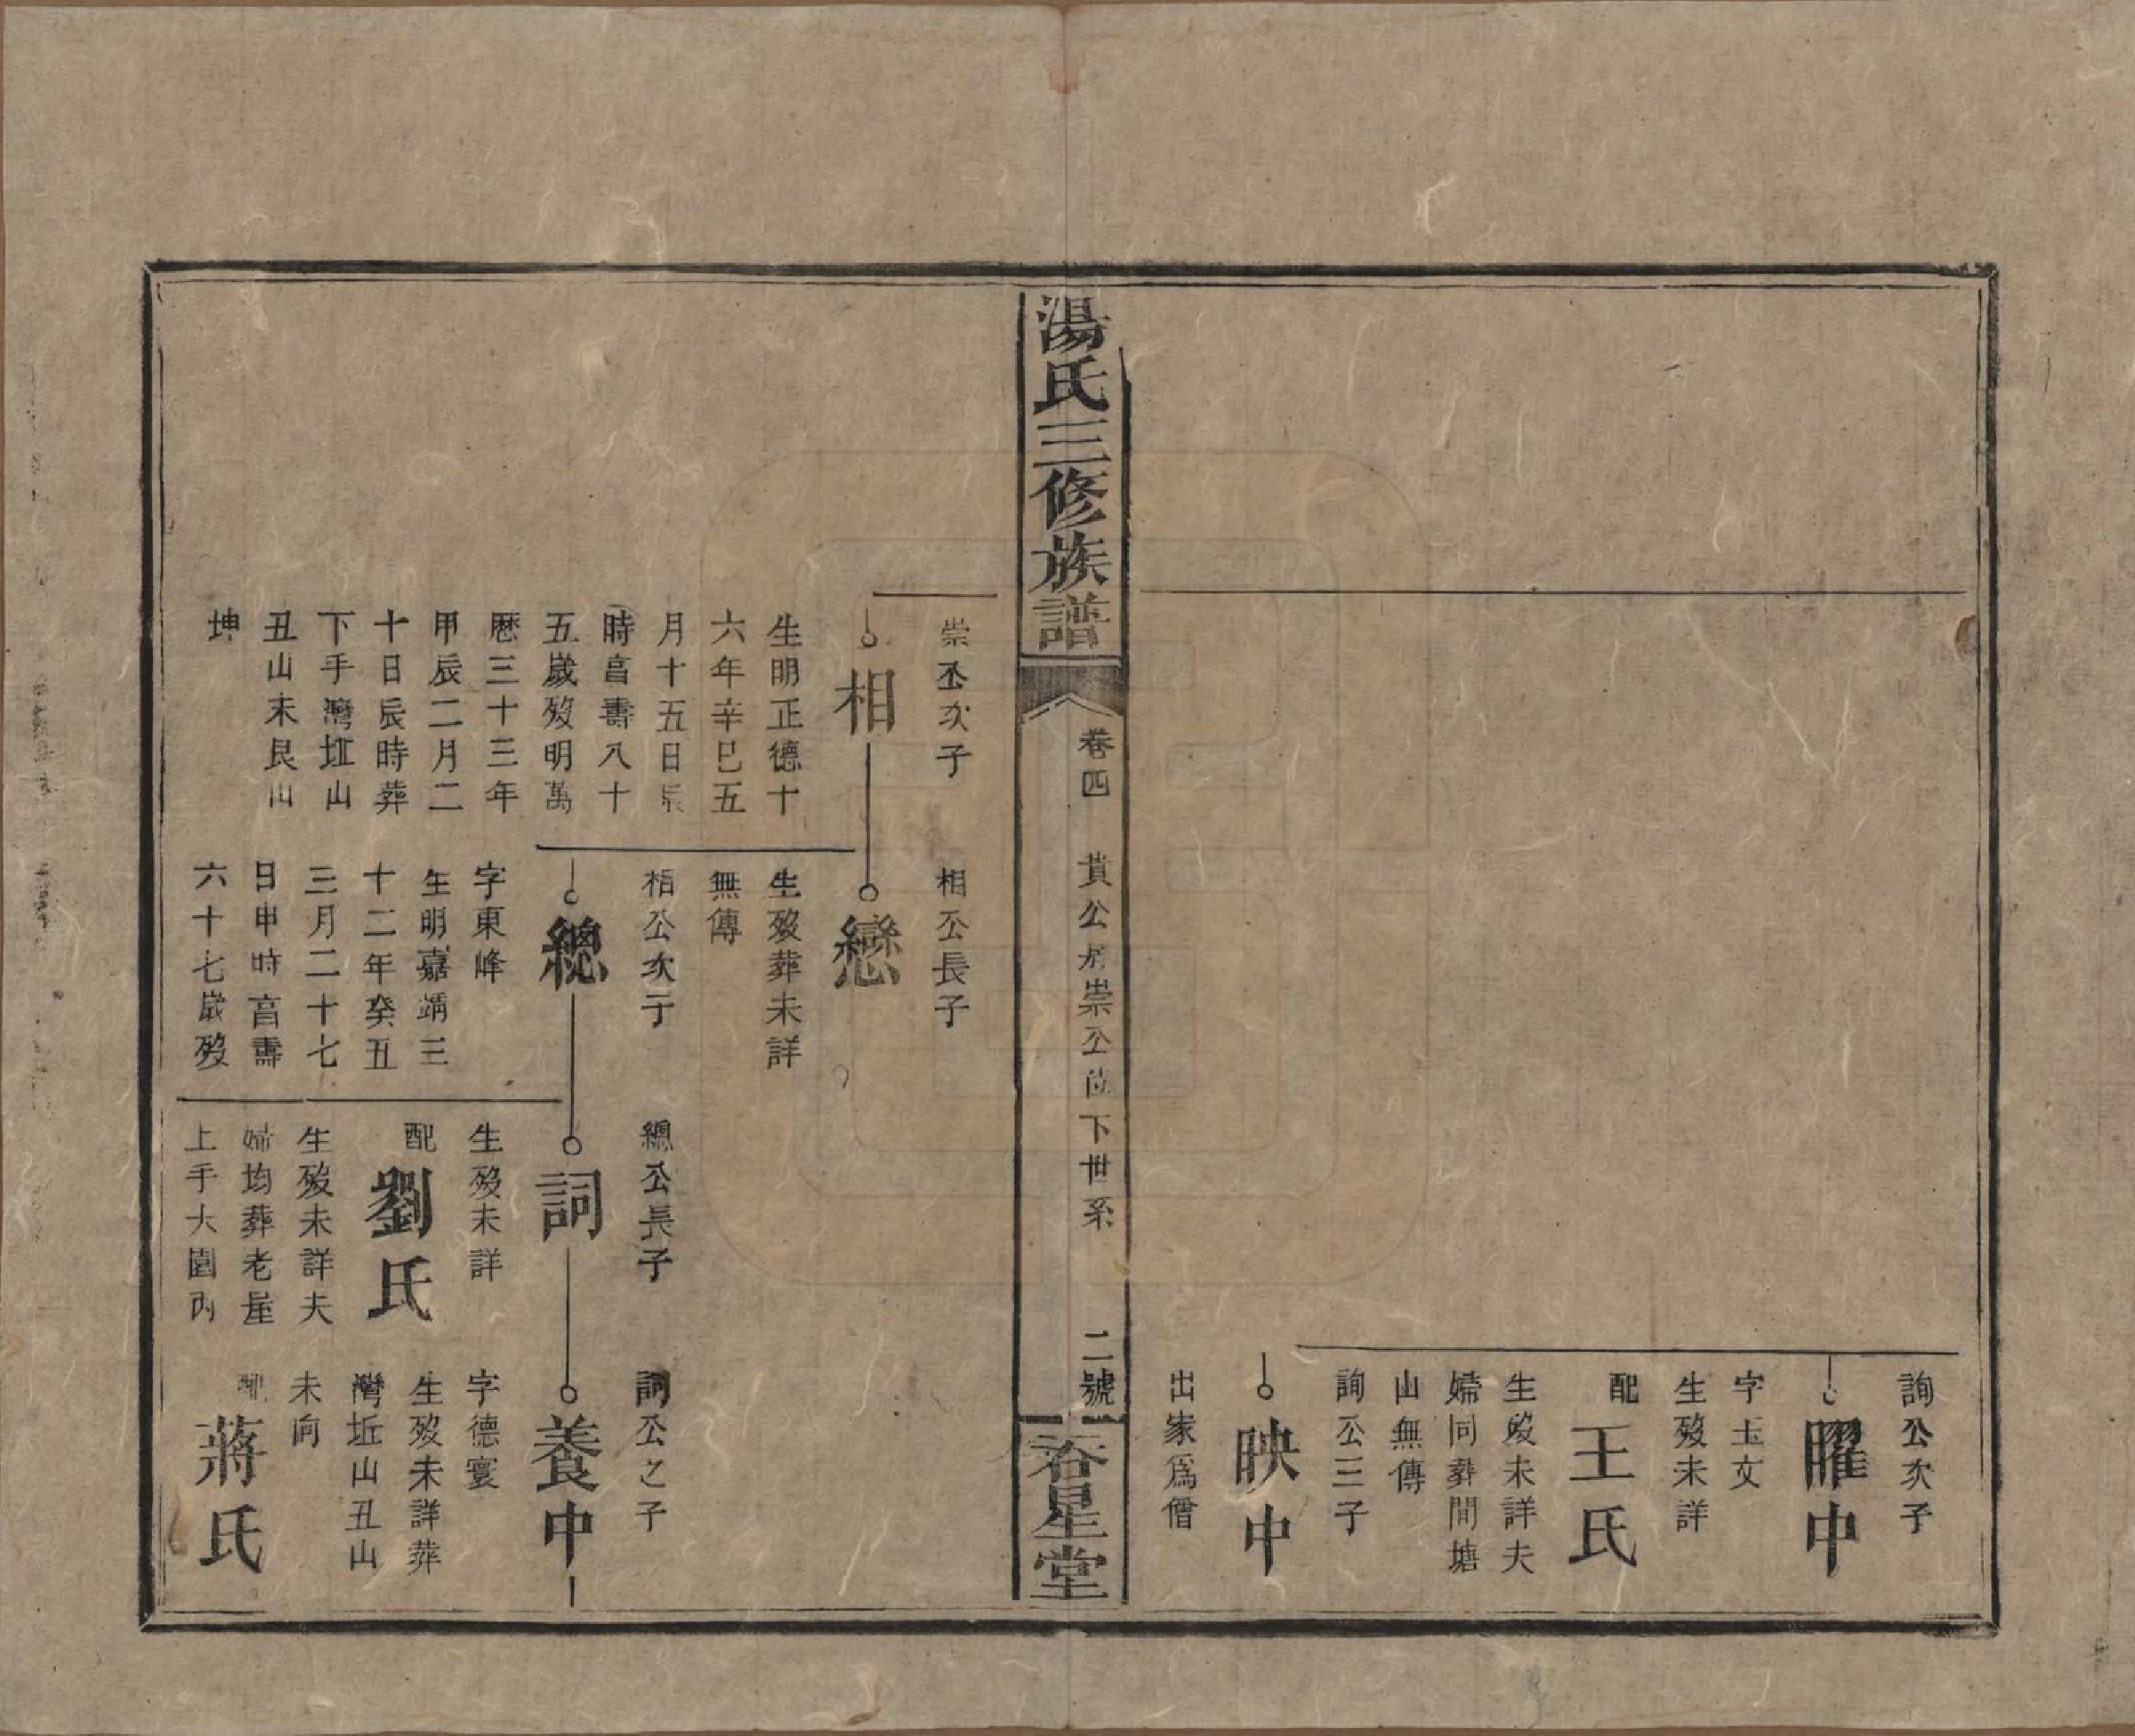 詢公次子
曜中
字玉文
生歿未詳
配
王氏
生歿未詳夫
婦同葬間塘
山無傳
詢公三子
映中
出家爲僧
湯氏三修族譜
卷四
貴公房崇公位下世系
二號
星堂
崇公次子
相
生明正德十
六年辛巳五
月十五日辰
時享壽八十
五歲歿明萬
歷三十三年
甲辰二月二
十日辰時葬
下手灣坵山
丑山未艮山
坤
相公長子
戀
生歿葬未詳
無傳
相公次子
總
字東峰
生明嘉靖三
十二年癸丑
三月二十七
日申時享壽
六十七歲歿
總公長子
詞
生歿未詳
配
劉氏
生歿未詳夫
婦均葬老屋
上手大園內
詞公之子
養中
字德寰
生歿未詳葬
灣坵山丑山
未向
配
蔣氏